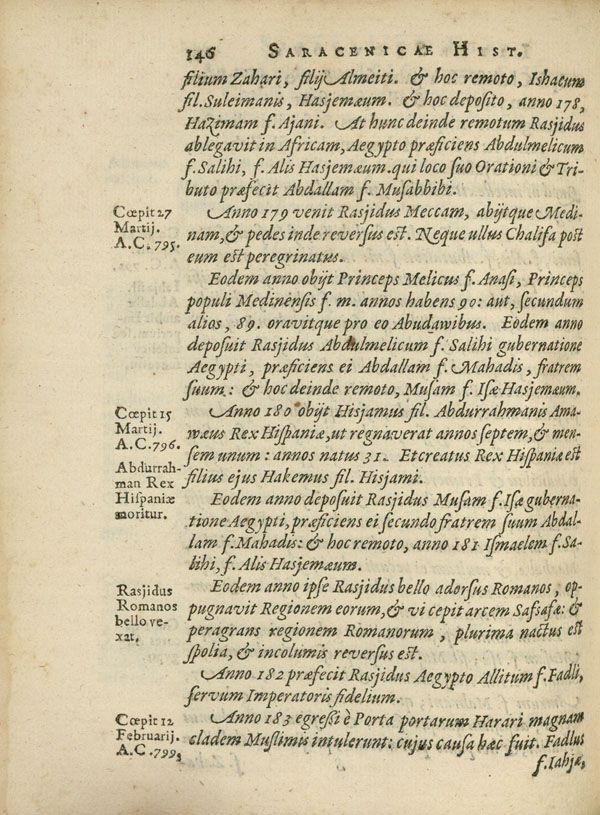 146 SARACENICAE HIST.
filium Zahari, filij Almeiti. & hoc remoto, Ishacum
fil. Suleimanis, Hasjemæum. & hoc deposito, anno 178,
Hazimam f. Ajani. At hunc deinde remotum Rasjidus
ablegavit in Africam, Aegypto præficiens Abdulmelicum
f. Salihi, f. Alis Hasjemæum. qui loco suo Orationi & Tri-
buto præfecit Abdallam f. Musabbibi.
Cœpit 27
Martij.
A.C. 795.
Anno 179 venit Rasjidus Meccam, abijtque Medi-
nam, & pedes inde reversus est. Neque ullus Chalifa post
eum est peregrinatus.
Eodem anno obijt Princeps Melicus f. Anasi, Princeps
populi Medinensis f. m. annos habens 90: aut, secundum
alios, 89. oravitque pro eo Abudawibus. Eodem anno
deposuit Rasjidus Abdulmelicum f. Salihi gubernatione
Aegypti, præficiens ei Abdallam f. Mahadis, fratrem
suum: & hoc deinde remoto, Musam f. Isæ Hasjemæum.
Cœpit 15
Martij.
A.C. 796.
Abdurrah-
man Rex
Hispaniæ
moritur.
Anno 180 obijt Hisjamus fil. Abdurrahmanis Ama-
wæus Rex Hispaniæ, ut regnaverat annos septem, & men-
sem unum: annos natus 31. Et creatus Rex Hispaniæ est
filius ejus Hakemus fil. Hisjami.
Eodem anno deposuit Rasjidus Musam f. Isæ guberna-
tione Aegypti, præficiens ei secundo fratrem suum Abdal-
lam f. Mahadis: & hoc remoto, anno 181 Ismaelem f. Sa-
lihi, f. Alis Hasjemæum.
Rasjidus
Romanos
bello ve-
xat.
Eodem anno ipse Rasjidus bello adorsus Romanos, op-
pugnavit Regionem eorum, & vi cepit arcem Safsafæ: &
peragrans regionem Romanorum, plurima nactus est
spolia, & incolumis reversus est.
Anno 182 præfecit Rasjidus Aegypto Allitum f. Fadli,
servum Imperatoris fidelium.
Cœpit 12
Februarij.
A.C. 799.
Anno 183 egressi è Porta portarum Harari magnam
cladem Muslimis intulerunt: cujus causa hæc fuit. Fadlus
f. Iahjæ,